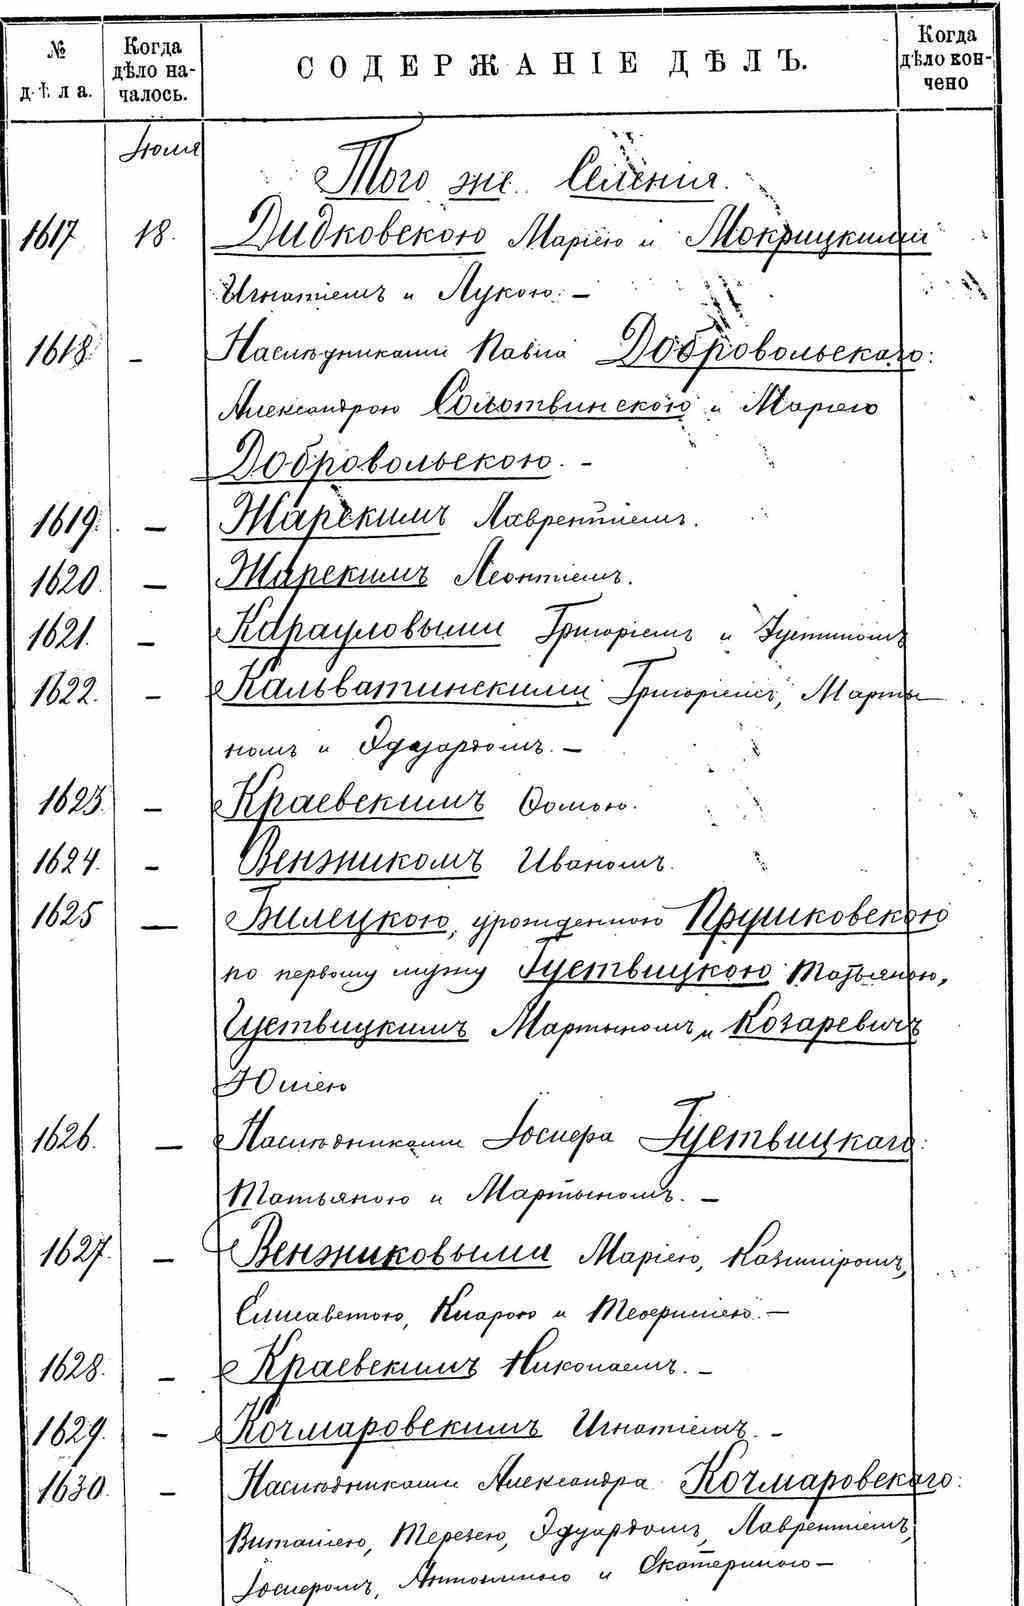 № дѣла.
Когда дѣло началось.
СОДЕРЖАНІЕ ДѢЛЪ.
Когда дѣло кончено
Июля
Того же Селенія.
1617 18. Дидковскою Маріею и Мокрицкими
Игнатіемъ и Лукою. —
1618 — Наслѣдниками Павла Добровольскаго:
Александрою Солотвинскою и Маріею
Добровольскою. —
1619. — Жарскимъ Лаврентіемъ.
1620. — Жарскимъ Леонтіемъ.
1621. — Карауловыми Григоріемъ и Густиномъ
1622. — Кальватинскими Григоріемъ, Марты
номъ и Эдуардомъ. —
1623. — Краевскимъ Ѳомою.
1624. — Венжикомъ Иваномъ.
1625 — Билецкою, урожденною Прушковскою
по первому мужу Густвицкою Татьяною,
Густвицкимъ Мартыномъ и Козаревичъ
Юліею
1626. — Наслѣдниками Іосифа Густвицкаго:
Татьяною и Мартыномъ. —
1627. — Венжиковыми Маріею, Казиміромъ,
Елисаветою, Кларою и Теофиліею. —
1628. — Краевскимъ Николаемъ. —
1629. — Кочмаровскимъ Игнатіемъ. —
1630. — Наслѣдниками Александра Кочмаровскаго:
Виталіею, Терезею, Эдуардомъ, Лаврентіемъ,
Іосифомъ, Антониною и Екатериною —